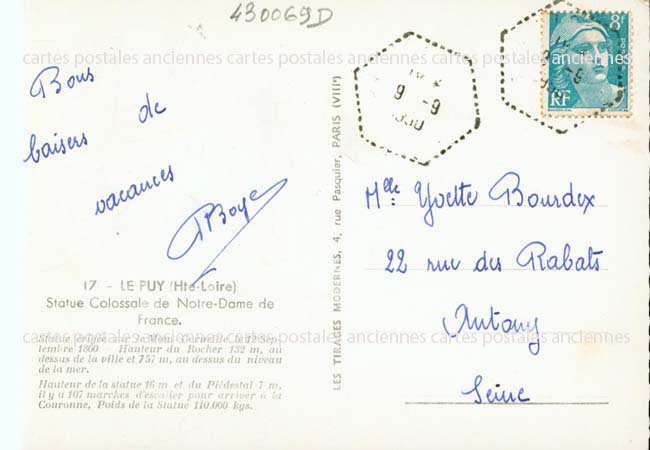 430069D
cartes postales anciennes cartes postales anciennes cartes postales anciennes
Bons
baisers de
vacances
PBoye
17 - LE PUY (Hte-Loire)
Statue Colossale de Notre-Dame de
France.
Statue érigée sur le Mont Corneille le 12 Sep-
tembre 1860 - Hauteur du Rocher 132 m, au
dessus de la ville et 757 m, au dessus du niveau
de la mer.
Hauteur de la statue 16 m et du Piédestal 7 m,
il y a 107 marches d'escalier pour arriver à la
Couronne, Poids de la Statue 110.000 kgs.
LES TIRAGES MODERNES, 4, rue Pasquier, PARIS (VIIIe)
9 -9
8F
POSTES
RF
Mlle: Yvette Bourdex
22 rue des Rabats
Antony
Seine
cartes postales anciennes cartes postales anciennes cartes postales anciennes